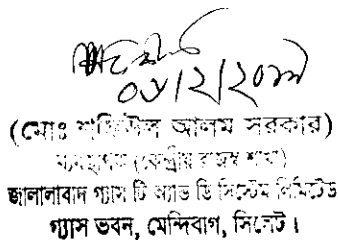 ০৬/২/২০১৯
(মোঃ শফিউল আলম সরকার)
ব্যবস্থাপক (কেন্দ্রীয় রাজস্ব শাখা)
জালালাবাদ গ্যাস টি অ্যান্ড ডি সিস্টেম লিমিটেড
গ্যাস ভবন, মেন্দিবাগ, সিলেট।